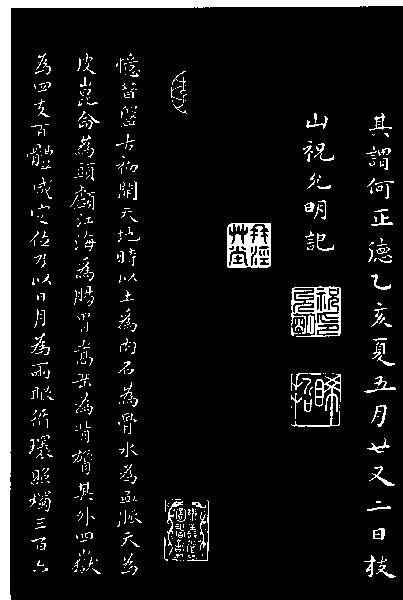 其謂何正德乙亥夏五月廿又二日枝
山祝允明記
憶昔盤古初開天地時以土為肉石為骨水為血脈天為
皮崑侖為頭顱江海為腸胃嵩岳為背膂其外四嶽
為四支百體咸定位乃以日月為兩眼循環照燭三百六